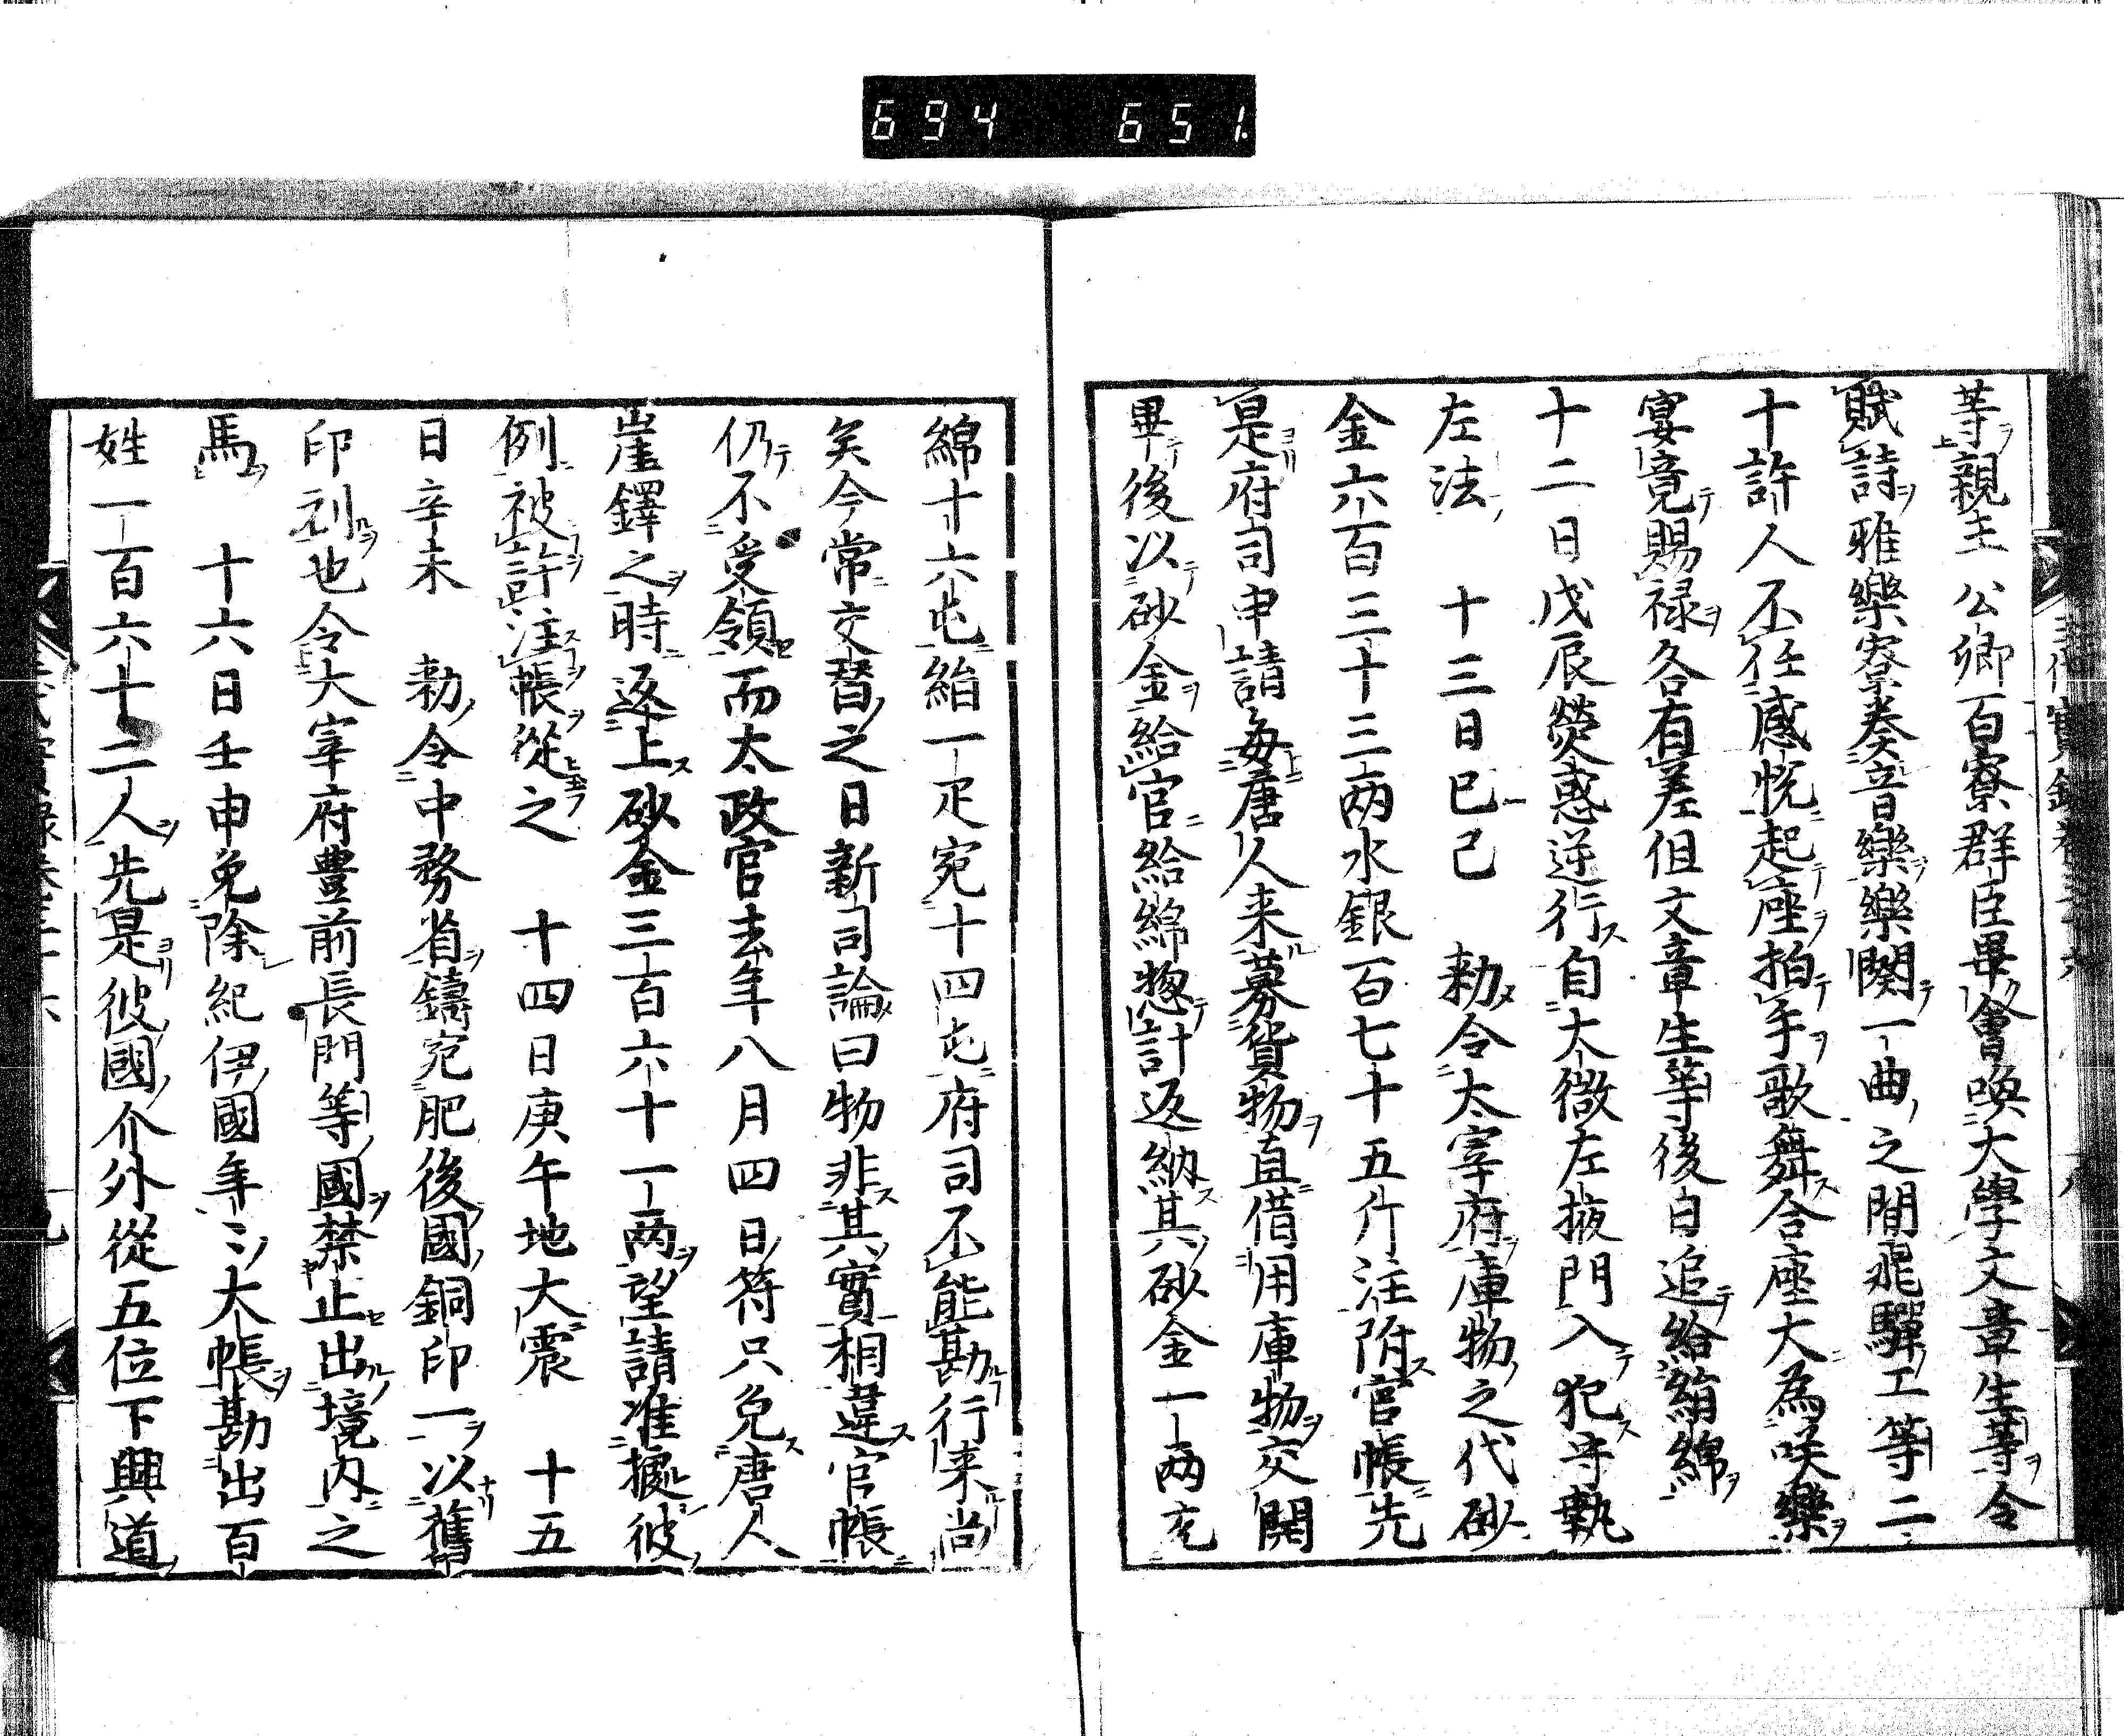 694 651
等親王公卿百寮群臣畢會喚大學文章生等令
賦詩雅樂寮奏音樂樂闋一曲之間飛驒工等二
十許人不任感悦起座拍手歌舞合座大為咲樂
宴竟賜禄各有差但文章生等後日追給絹綿
十二日戊辰熒惑逆行自大微左掖門入犯守執
左法　十三日巳己　勅令太宰府庫物之代砂
金六百三十三两水銀百七十五斤注附官帳先
是府司申請毎唐人来募貨物直借用庫物交関
畢後以砂金給官給綿惣計返納其砂金一两充
綿十六屯絈一疋宛十四屯府司不能勘行来尚
矣今常交替之日新司論曰物非其實相違官帳
仍不受領而太政官去年八月四日符只免唐人
崖鐸之時返上砂金三百六十一两望請准據彼
例被許注帳從之　十四日庚午地大震　十五
日辛未　勅令中務省鑄宛肥後國銅印一以舊
印刓也令大宰府豊前長門等國禁止出境内之
馬　十六日壬申免除紀伊國年〻大帳勘出百
姓一百六十二人先是彼國介外從五位下興道